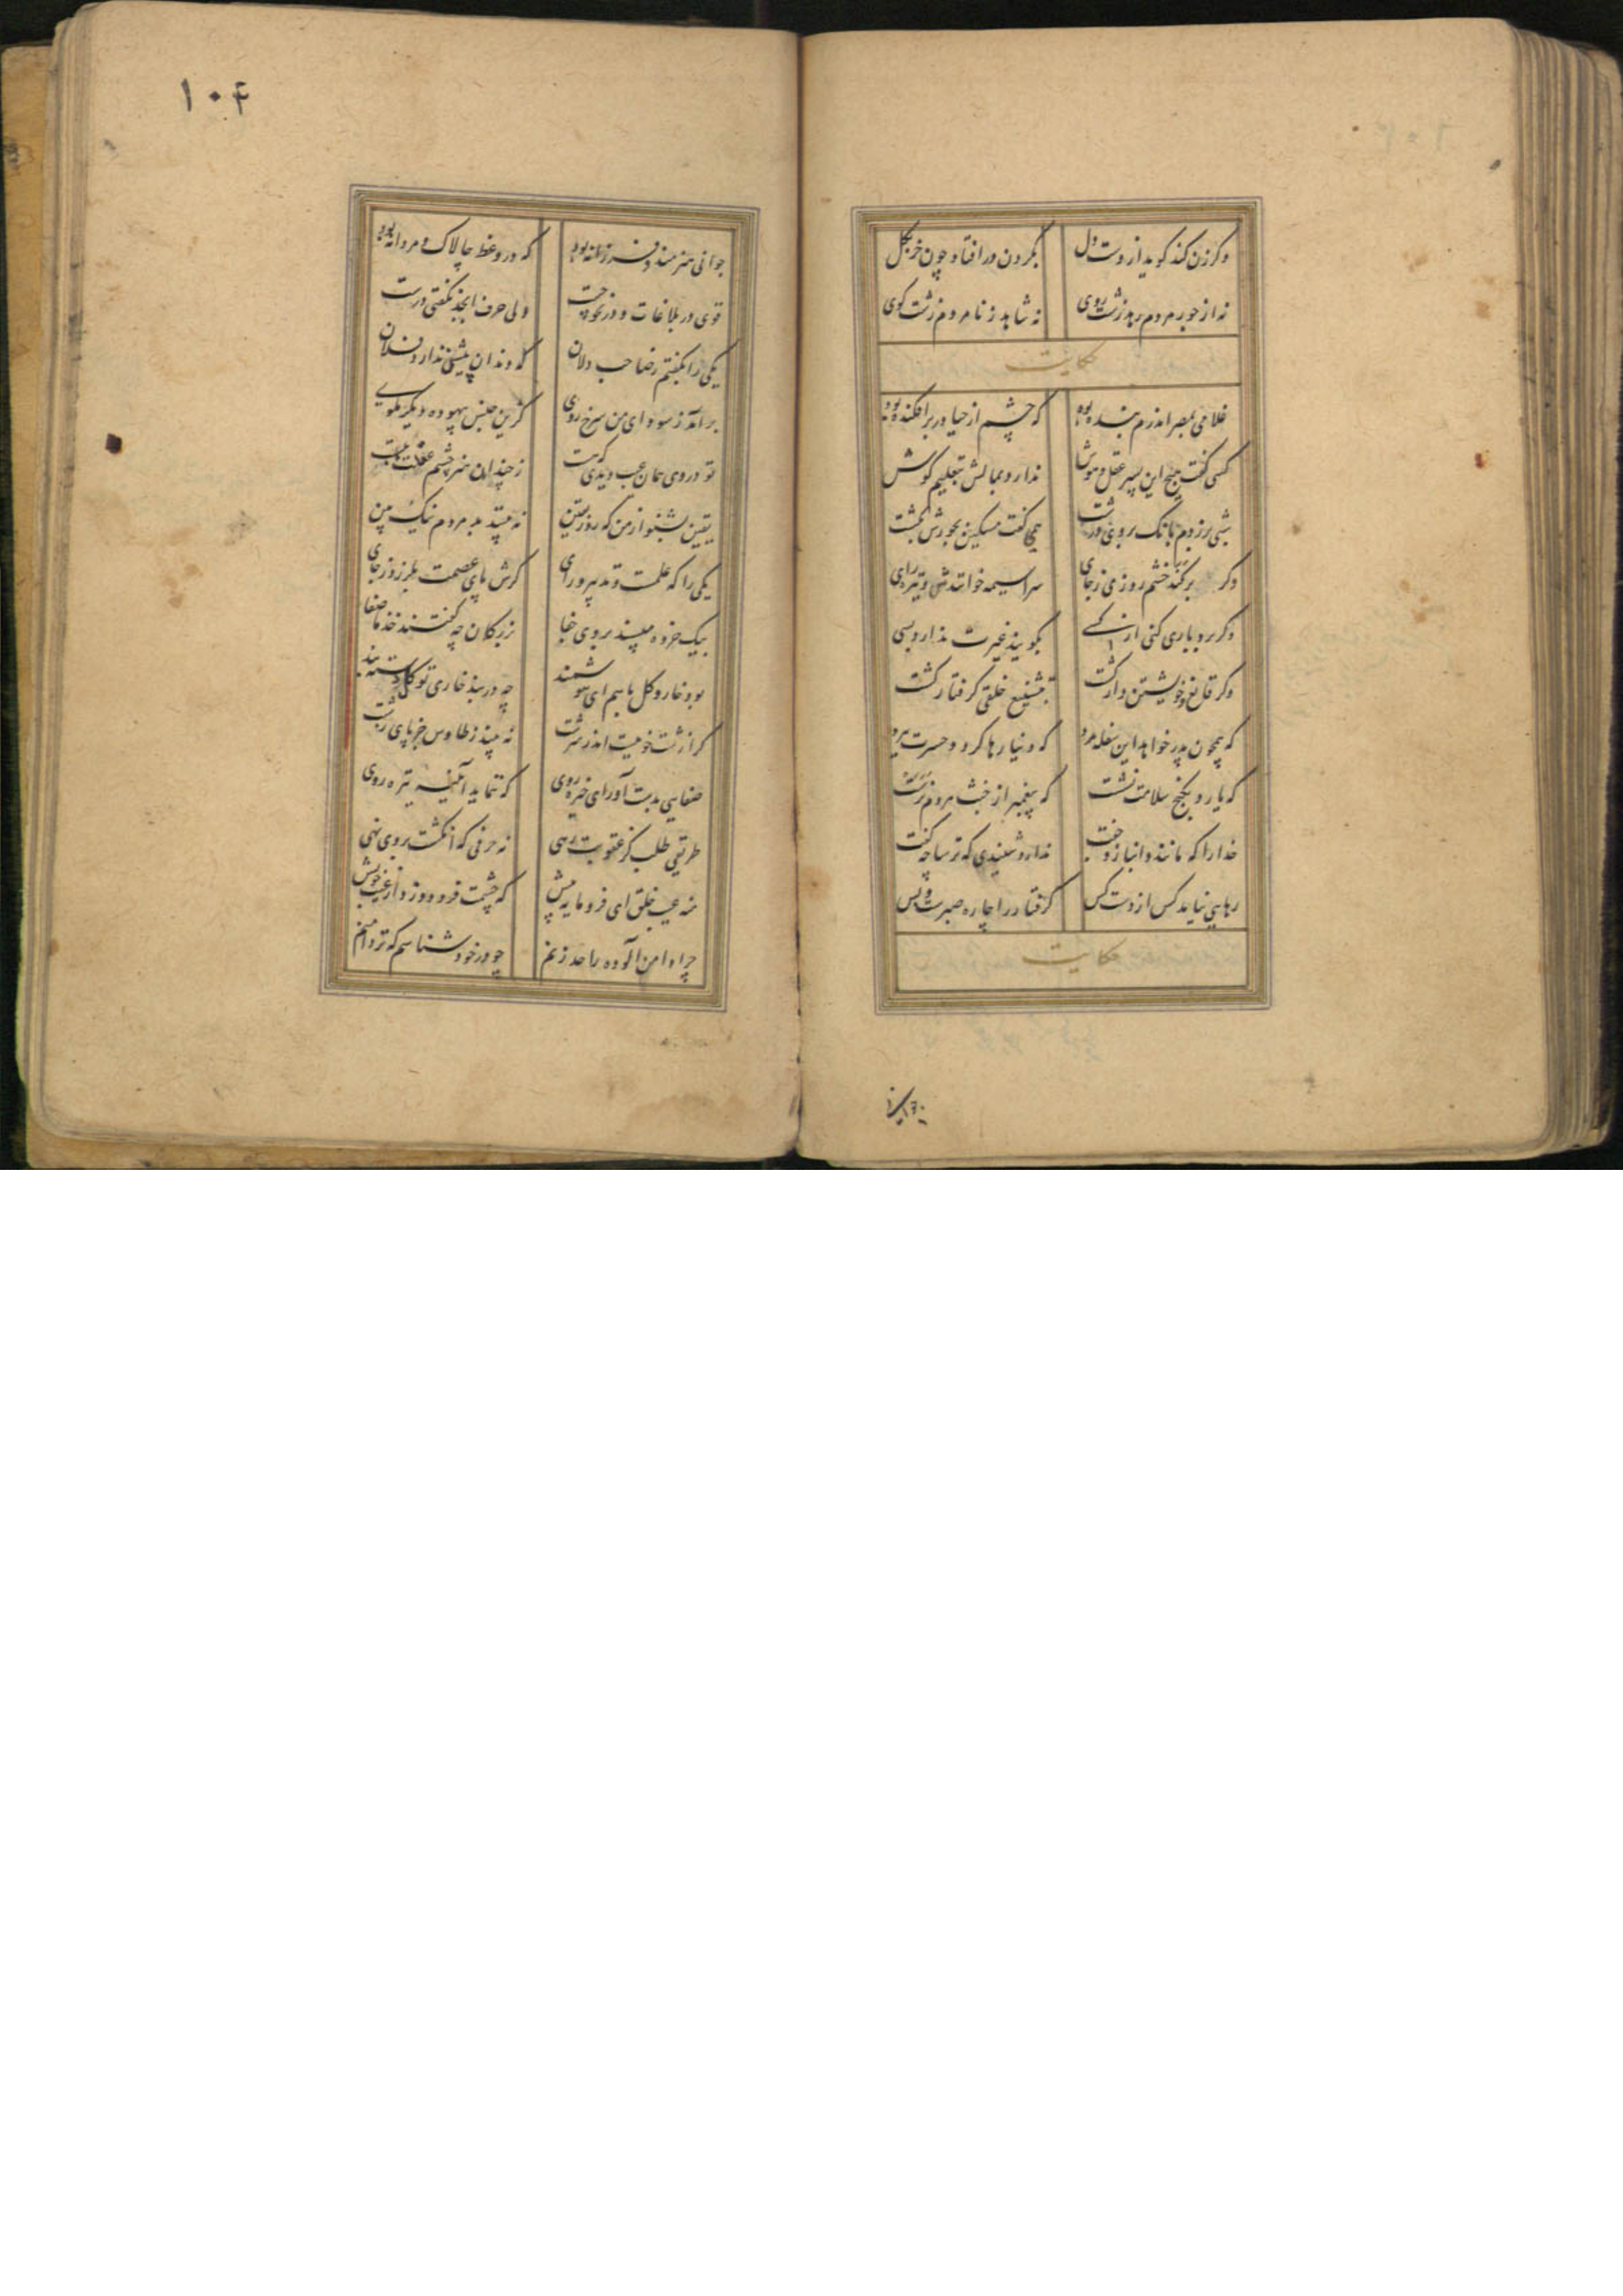 وکر زن کند کوید از دست دل بکردن در افتاد چون خر بکل
نه از جور مردم رهد زشت روی نه شاهد ز نامردم زشت کوی
حکایت
غلامی بمصر اندرم بنده بود که چشم از حیا در بر افکنده بود
کسی کفت هیچ این پسر عقل و هوش ندارد بمالش بتعلیم کوش
شبی برزدم بانک بر وی درشت همی کفت مسکین بجورش بکشت
وکر برکند خشم روزی ز جای سراسیمه خوانندش و تیره رای
وکر بردباری کنی از کسی بکویند غیرت ندارد بسی
وکر قانع و خویشتن دار کشت بتشنیع خلقی کرفتار کشت
که همچون پدر خواهد این سفله مرد که دنیا رها کرد و حسرت ببرد
که یارد بکنج سلامت نشست که پیغمبر از خبث مردم نرست
خدا را که مانند و انباز و جفت ندارد شنیدی که ترسا چه کفت
رهایی نیابد کس از دست کس کرفتار را چاره صبرست و بس
حکایت
۱۰۴
جوانی هنرمند و فرزانه بود که در وعظ چالاک و مردانه بود
قوی در بلاغات و در نحو چست ولی حرف ابجد نکفتی درست
یکی را بکفتم ز صاحب دلان که دندان پیشین ندارد فلان
برآمد ز سودای من سرخ روی کزین جنس بیهوده دیکر مکوی
تو در وی همان عیب دیدی که هست ز چندان هنر چشم عقلت ببست
یقین بشنو از من که روز یقین نه بیند بد مردم نیک بین
یکی را که علمست و تدبیر و رای کرش پای عصمت بلرزد ز جای
بیک خرده مپسند بر وی جفا بزرکان چه کفتند خذ ما صفا
بود خار و کل با هم ای هوشمند چه در بند خاری تو کل دسته بند
کرا زشت خویست اندر سرشت نه بیند ز طاوس جز پای زشت
صفایی بدست آور ای خیره روی که ننماید آیینه تیره روی
طریقی طلب کز عقوبت رهی نه حرفی که انکشت بر وی نهی
منه عیب خلق ای فرومایه پیش که چشمت فرو دوزد از عیب خویش
چرا دامن آلوده را حد زنم چو در خود شناسم که تر دامنم